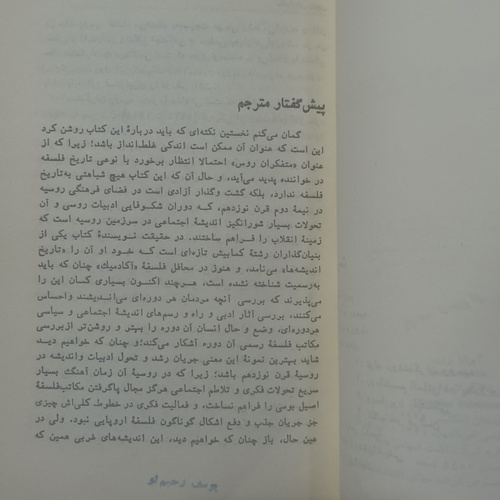 پیش‌گفتار مترجم
گمان می‌کنم نخستین نکته‌ای که باید دربارهٔ این کتاب روشن کرد
این است که عنوان آن ممکن است اندکی غلط‌انداز باشد؛ زیرا که از
عنوان «متفکران روس» احتمالا انتظار برخورد با نوعی تاریخ فلسفه
در خواننده پدید می‌آید، و حال آن که این کتاب هیچ شباهتی به‌تاریخ
فلسفه ندارد، بلکه گشت وگذار آزادی است در فضای فرهنگی روسیه
در نیمهٔ دوم قرن نوزدهم، که دوران شکوفایی ادبیات روسی و آن
تحولات بسیار شورانگیز اندیشهٔ اجتماعی در سرزمین روسیه است که
زمینهٔ انقلاب را فراهم ساختند. در حقیقت نویسندهٔ کتاب یکی از
بنیان‌گذاران رشتهٔ کمابیش تازه‌ای است که خود او آن را «تاریخ
اندیشه‌ها» می‌نامد، و هنوز در محافل فلسفهٔ «آکادمیک» چنان که باید
به‌رسمیت شناخته نشده است، هرچند اکنون بسیاری کسان این را
می‌پذیرند که بررسی آنچه مردمان هر دوره‌ای می‌اندیشند واحساس
می‌کنند، بررسی آثار ادبی و راه و رسم‌های اندیشهٔ اجتماعی و سیاسی
هردوره‌ای، وضع و حال انسان آن دوره را بهتر و روشن‌تر ازبررسی
مکاتب فلسفهٔ رسمی آن دوره آشکار می‌کند؛و چنان که خواهیم دید
شاید بهترین نمونهٔ این معنی جریان رشد و تحول ادبیات واندیشه در
روسیهٔ قرن نوزدهم باشد؛ زیرا که در روسیهٔ آن زمان آهنگ بسیار
سریع تحولات فکری و تلاطم اجتماعی هرگز مجال پاگرفتن مکاتب‌فلسفهٔ
اصیل بومی را فراهم نساخت، و فعالیت فکری در خطوط کلی‌اش چیزی
جز جریان جذب و دفع اشکال گوناگون فلسفهٔ اروپایی نبود. ولی در
عین حال، باز چنان که خواهیم دید، این اندیشه‌های غربی همین که